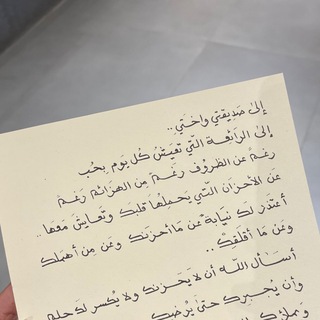 إلىٰ صَديقتي واختي..
إلىٰ الرَائعة التّي تَعيشُ كُل يَوم بِحُب
رغمُ عن الظروُف رَغم مِن الهَزائم رَغم
عَن الأحزان التّي يَحملهُا قلبك وتَعايش مَعَها..
أعتذر لَكِ نيابةً عَن مَا أحزنك وعَن مِن أهمَلك
وعَن مَا أقلَقكِ..
أسَأل اللّه أن لا يَحزنك ولا يُكسر لكَ حلم
وأن يُجبرك حتىٰ يُرضيك